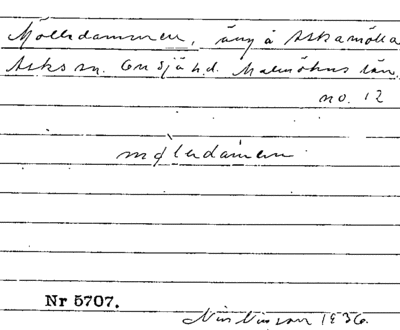 Mölledammen, äng å Askamölla
Asks sn. Onsjö hd. Malmöhus län
no. 12
mølerdamen
Nr 5707.
Nils Nilsson 1936.